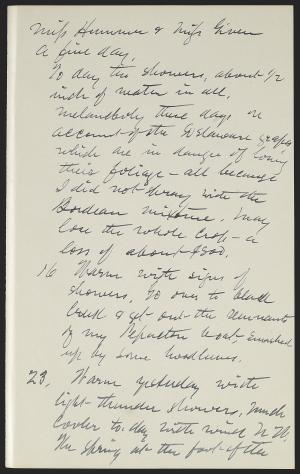 Miss Hummer & Miss Given
A fine day.
To day two showers, about 1/2
inch of water in all.
Melancholy these days on
account of the Delaware grapes
which are in danger of losing
their foliage - all because
I did not spray with the
Bordeau mixture. May
lose the whole crop - a
loss of about $500.
16 Warm with signs of
showers. Go over to black
Creek & get out the remnants
of my Pepacton boat, smashed
up by some hoodlums.
23. Warm yesterday with
light thunder showers, much
cooler to-day with wind N.W.
The spring at the foot of the